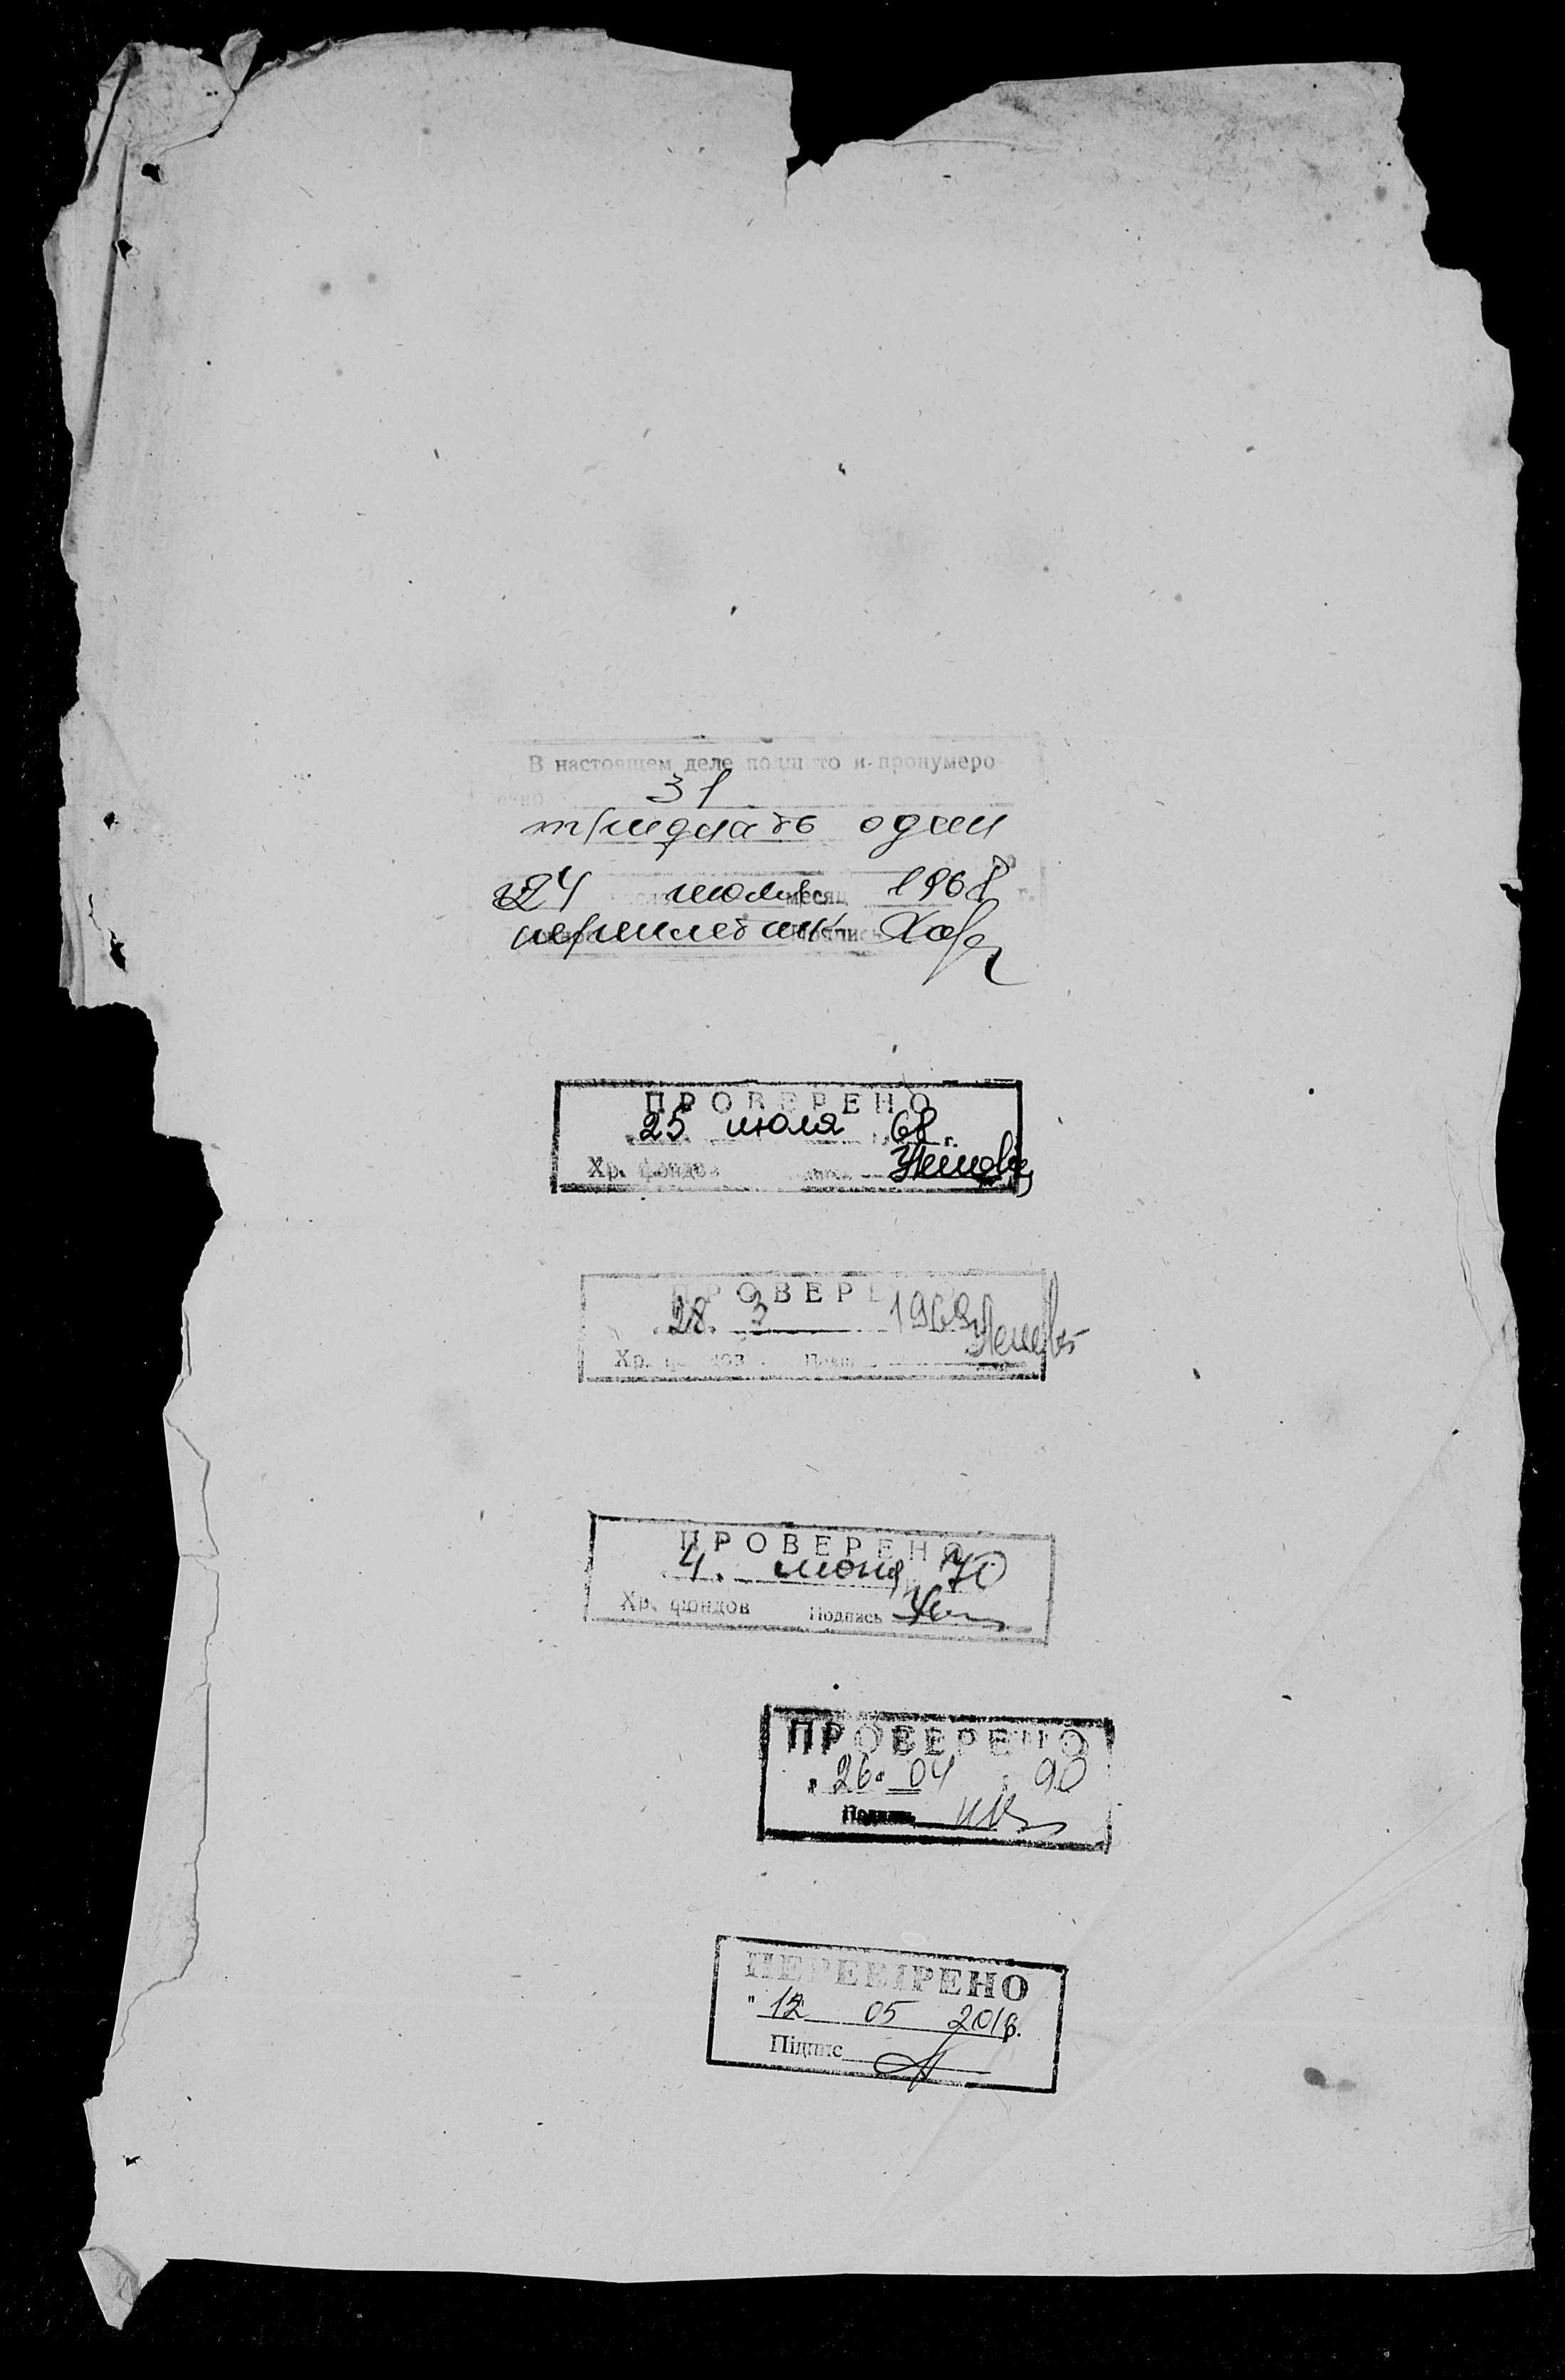 В настоящем деле подшито и пронумеро-
вано 31
тридцать один
24 июля месяц 1968 г.
переплетчик Подпись
ПРОВЕРЕНО
25 июля 68 г.
Хр. фондов
ПРОВЕРЕНО
28. 3 1969
Хр. фондов Подпись
ПРОВЕРЕНО
4. июня 70
Хр. фондов Подпись
ПРОВЕРЕНО
"26" 04 90
Подпись
ПЕРЕВІРЕНО
"12 05 2018р.
Підпис